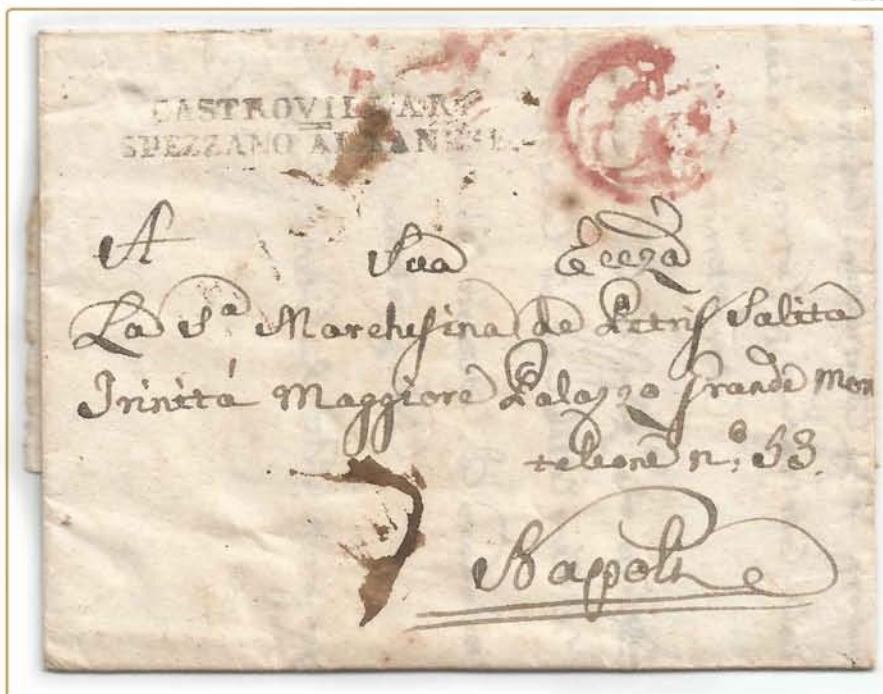 CASTROVILLARI
SPEZZANO ALBANESE.
A Sua Ecc.za
La S.a Marchesina de Petris Salita
Trinitá Maggiore Palazzo Grande Mon
teleone n.o 53.
Napoli